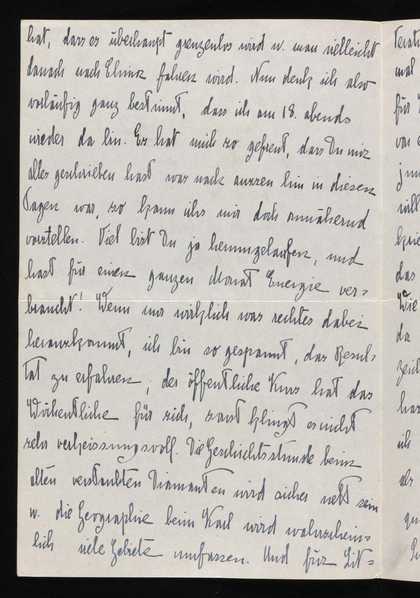 hat, dass es überhaupt grenzenlos wird u. man vielleicht
danach nach China fahren wird. Nun denk ich also
vorläufig ganz bestimmt, dass ich am 18. abends
wieder da bin. Es hat mich so gefreut, dass Du mir
alles geschrieben hast was nach aussen hin in diesen
Tagen war, so kann ichs mir doch annähernd
vorstellen. Viel bist Du ja herumgelaufen, und
hast für einen ganzen Monat Energie ver-
braucht! Wenn nur wirklich was rechtes dabei
herauskommt, ich bin so gespannt, das Resul-
tat zu erfahren, der öffentliche Kurs hat das
Wöchentliche für sich, sonst klingt es nicht
sehr verheissungsvoll. Die Geschichtsstunde beim
alten verstaubten Diamanten wird sicher nett sein
u. die Geographie beim Karl wird wahrschein-
lich viele Gebiete umfassen. Und für Lit-
mal
für
das
Wie
da
ich